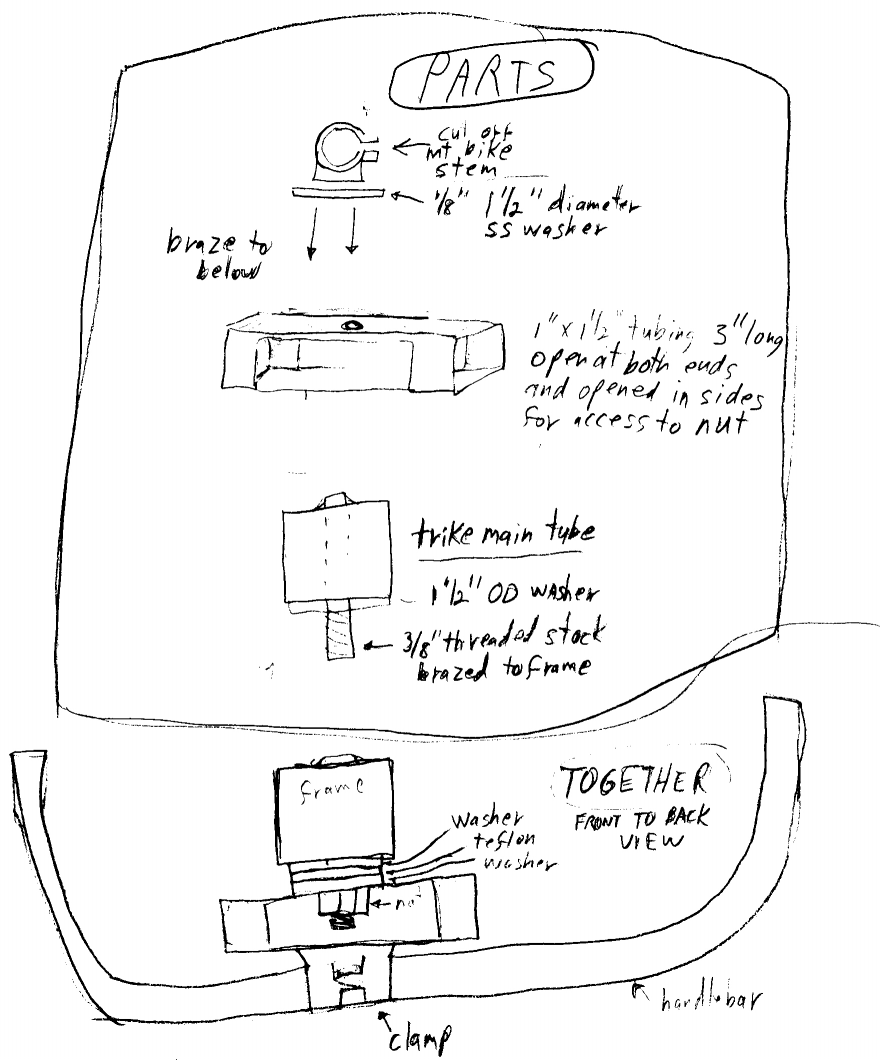 PARTS
cut off
mt bike
stem
1/8" 1 1/2" diameter
SS washer
braze to
below
1" x 1 1/2" tubing 3" long
open at both ends
and opened in sides
for access to nut
trike main tube
1 1/2" OD washer
3/8" threaded stock
brazed to frame
frame
TOGETHER
FRONT TO BACK
VIEW
washer
teflon
washer
nut
handlebar
clamp